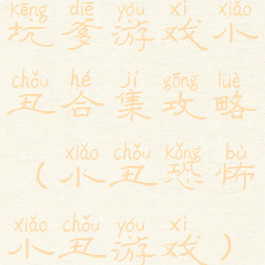 kēng diē yóu xì xiǎo
坑爹游戏小
chǒu hé jí gōng lüè
丑合集攻略
xiǎo chǒu kǒng bù
（小丑恐怖
xiǎo chǒu yóu xì
小丑游戏）